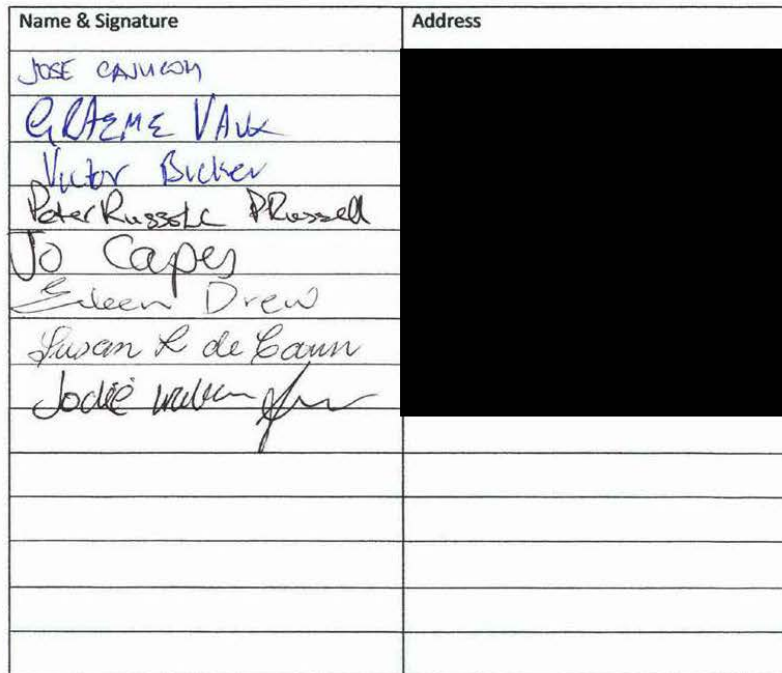 Name & Signature Address
JOSE
GRAEME VAUX
Victor Bucker
Peter Russell PRussell
Jo Capes
Eileen Drew
Susan R de
Jodie